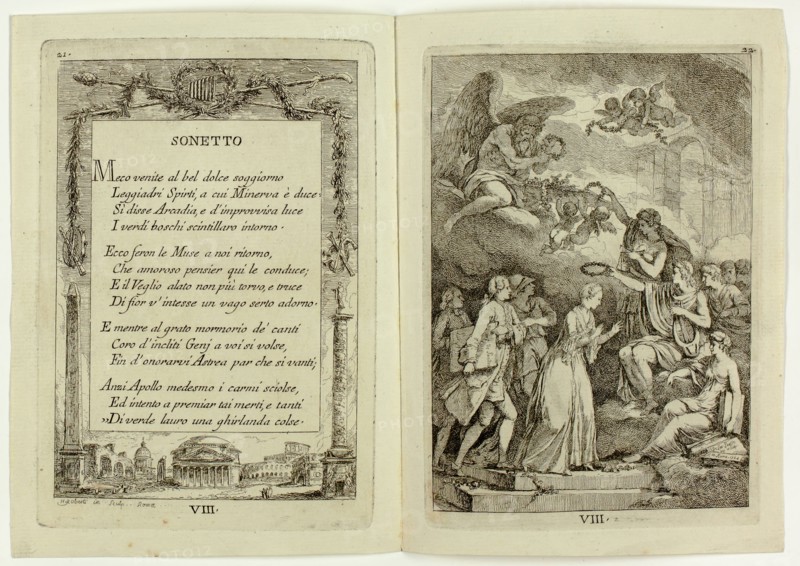 21.
SONETTO
Meco venite al bel dolce soggiorno
Leggiadri Spirti, a cui Minerva è duce:
Si disse Arcadia, e d'improvvisa luce
I verdi boschi scintillaro intorno.
Ecco feron le Muse a noi ritorno,
Che amoroso pensier quì le conduce;
E il Veglio alato non più torvo, e truce
Di fior v'intesse un vago serto adorno.
E mentre al grato mormorio de' canti
Coro d'incliti Genj a voi si volse,
Fin d'onorarvi Astrea par che si vanti;
Anzi Apollo medesmo i carmi sciolse,
Ed intento a premiar tai merti, e tanti
»Di verde lauro una ghirlanda colse.
VIII.
22.
VIII.